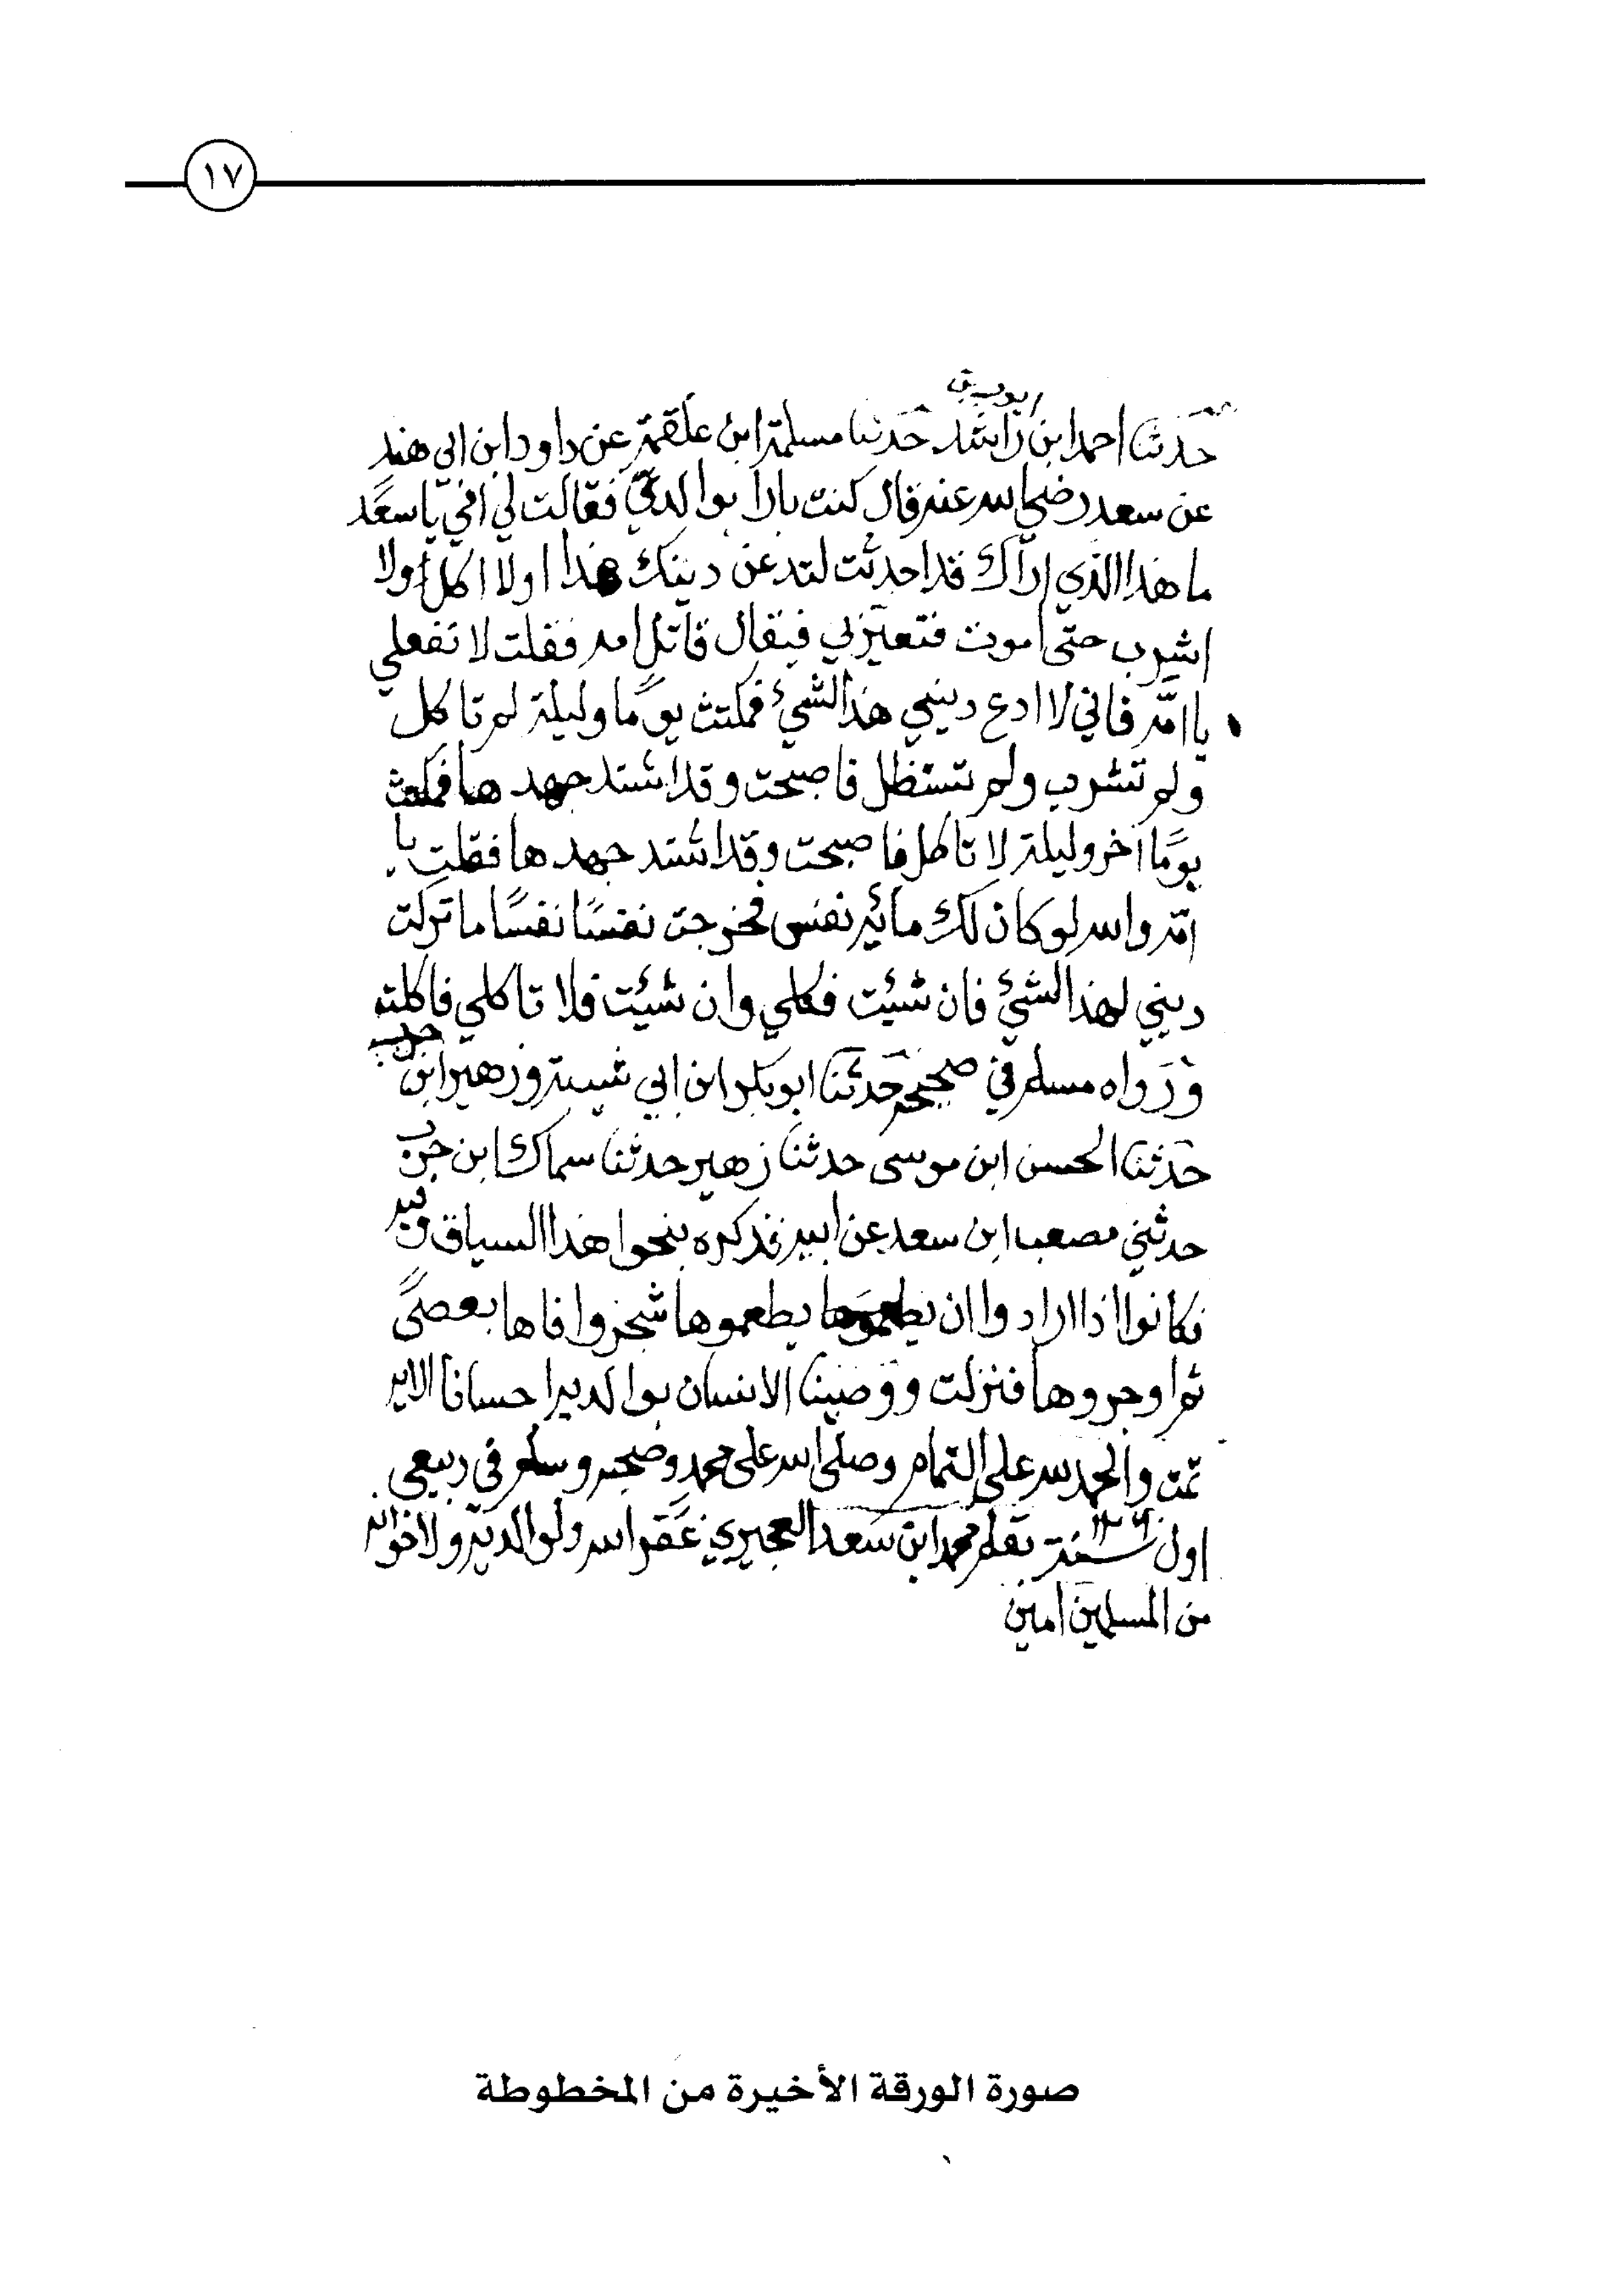 ١٧
حدثنا احمد ابن راشد حدثنا مسلمة ابن علقمة عن داود ابن ابي هند
عن سعد رضي الله عنه قال كنت بارا بوالدتي فقالت لي امي يا سعد
ما هذا الذي اراك قد احدثت لتدعن دينك هذا اولا اكل ولا
اشرب حتى اموت فتعير بي فيقال قاتل امه فقلت لا تفعلي
يا امه فاني لا ادع ديني هذا الشيء فمكثت يومًا وليلة لم تاكل
ولم تشرب ولم تستظل فاصبحت وقد اشتد جهدها فمكثت
يومًا اخر وليلة لا تاكل فاصبحت وقد اشتد جهدها فقلت يا
امه والله لو كان لك مائة نفس فخرجت نفسًا نفسًا ما تركت
ديني لهذا الشئ فان شئت فكلي وان شئت فلا تاكلي فاكلت
ورواه مسلم في صحيحه حدثنا ابو بكر ابن ابي شيبة وزهير ابن حرب
حدثنا الحسن ابن موسى حدثنا زهير حدثنا سماك ابن حرب
حدثني مصعب ابن سعد عن ابيه فذكره بنحوا هذا السياق وفيه
فكانوا اذا ارادوا ان يطعموها شجروا فاها بعصىً
ثم اوجروها فنزلت ووصينا الانسان بوالديه احسانا الايه
تمت والحمد لله على التمام وصلى الله على محمد وصحبه وسلم في ربيعي
اول سنة بقلم محمد ابن سعد العجيري غفر الله ولوالديه ولاخوانه
من المسلمين امين
صورة الورقة الأخيرة من المخطوطة